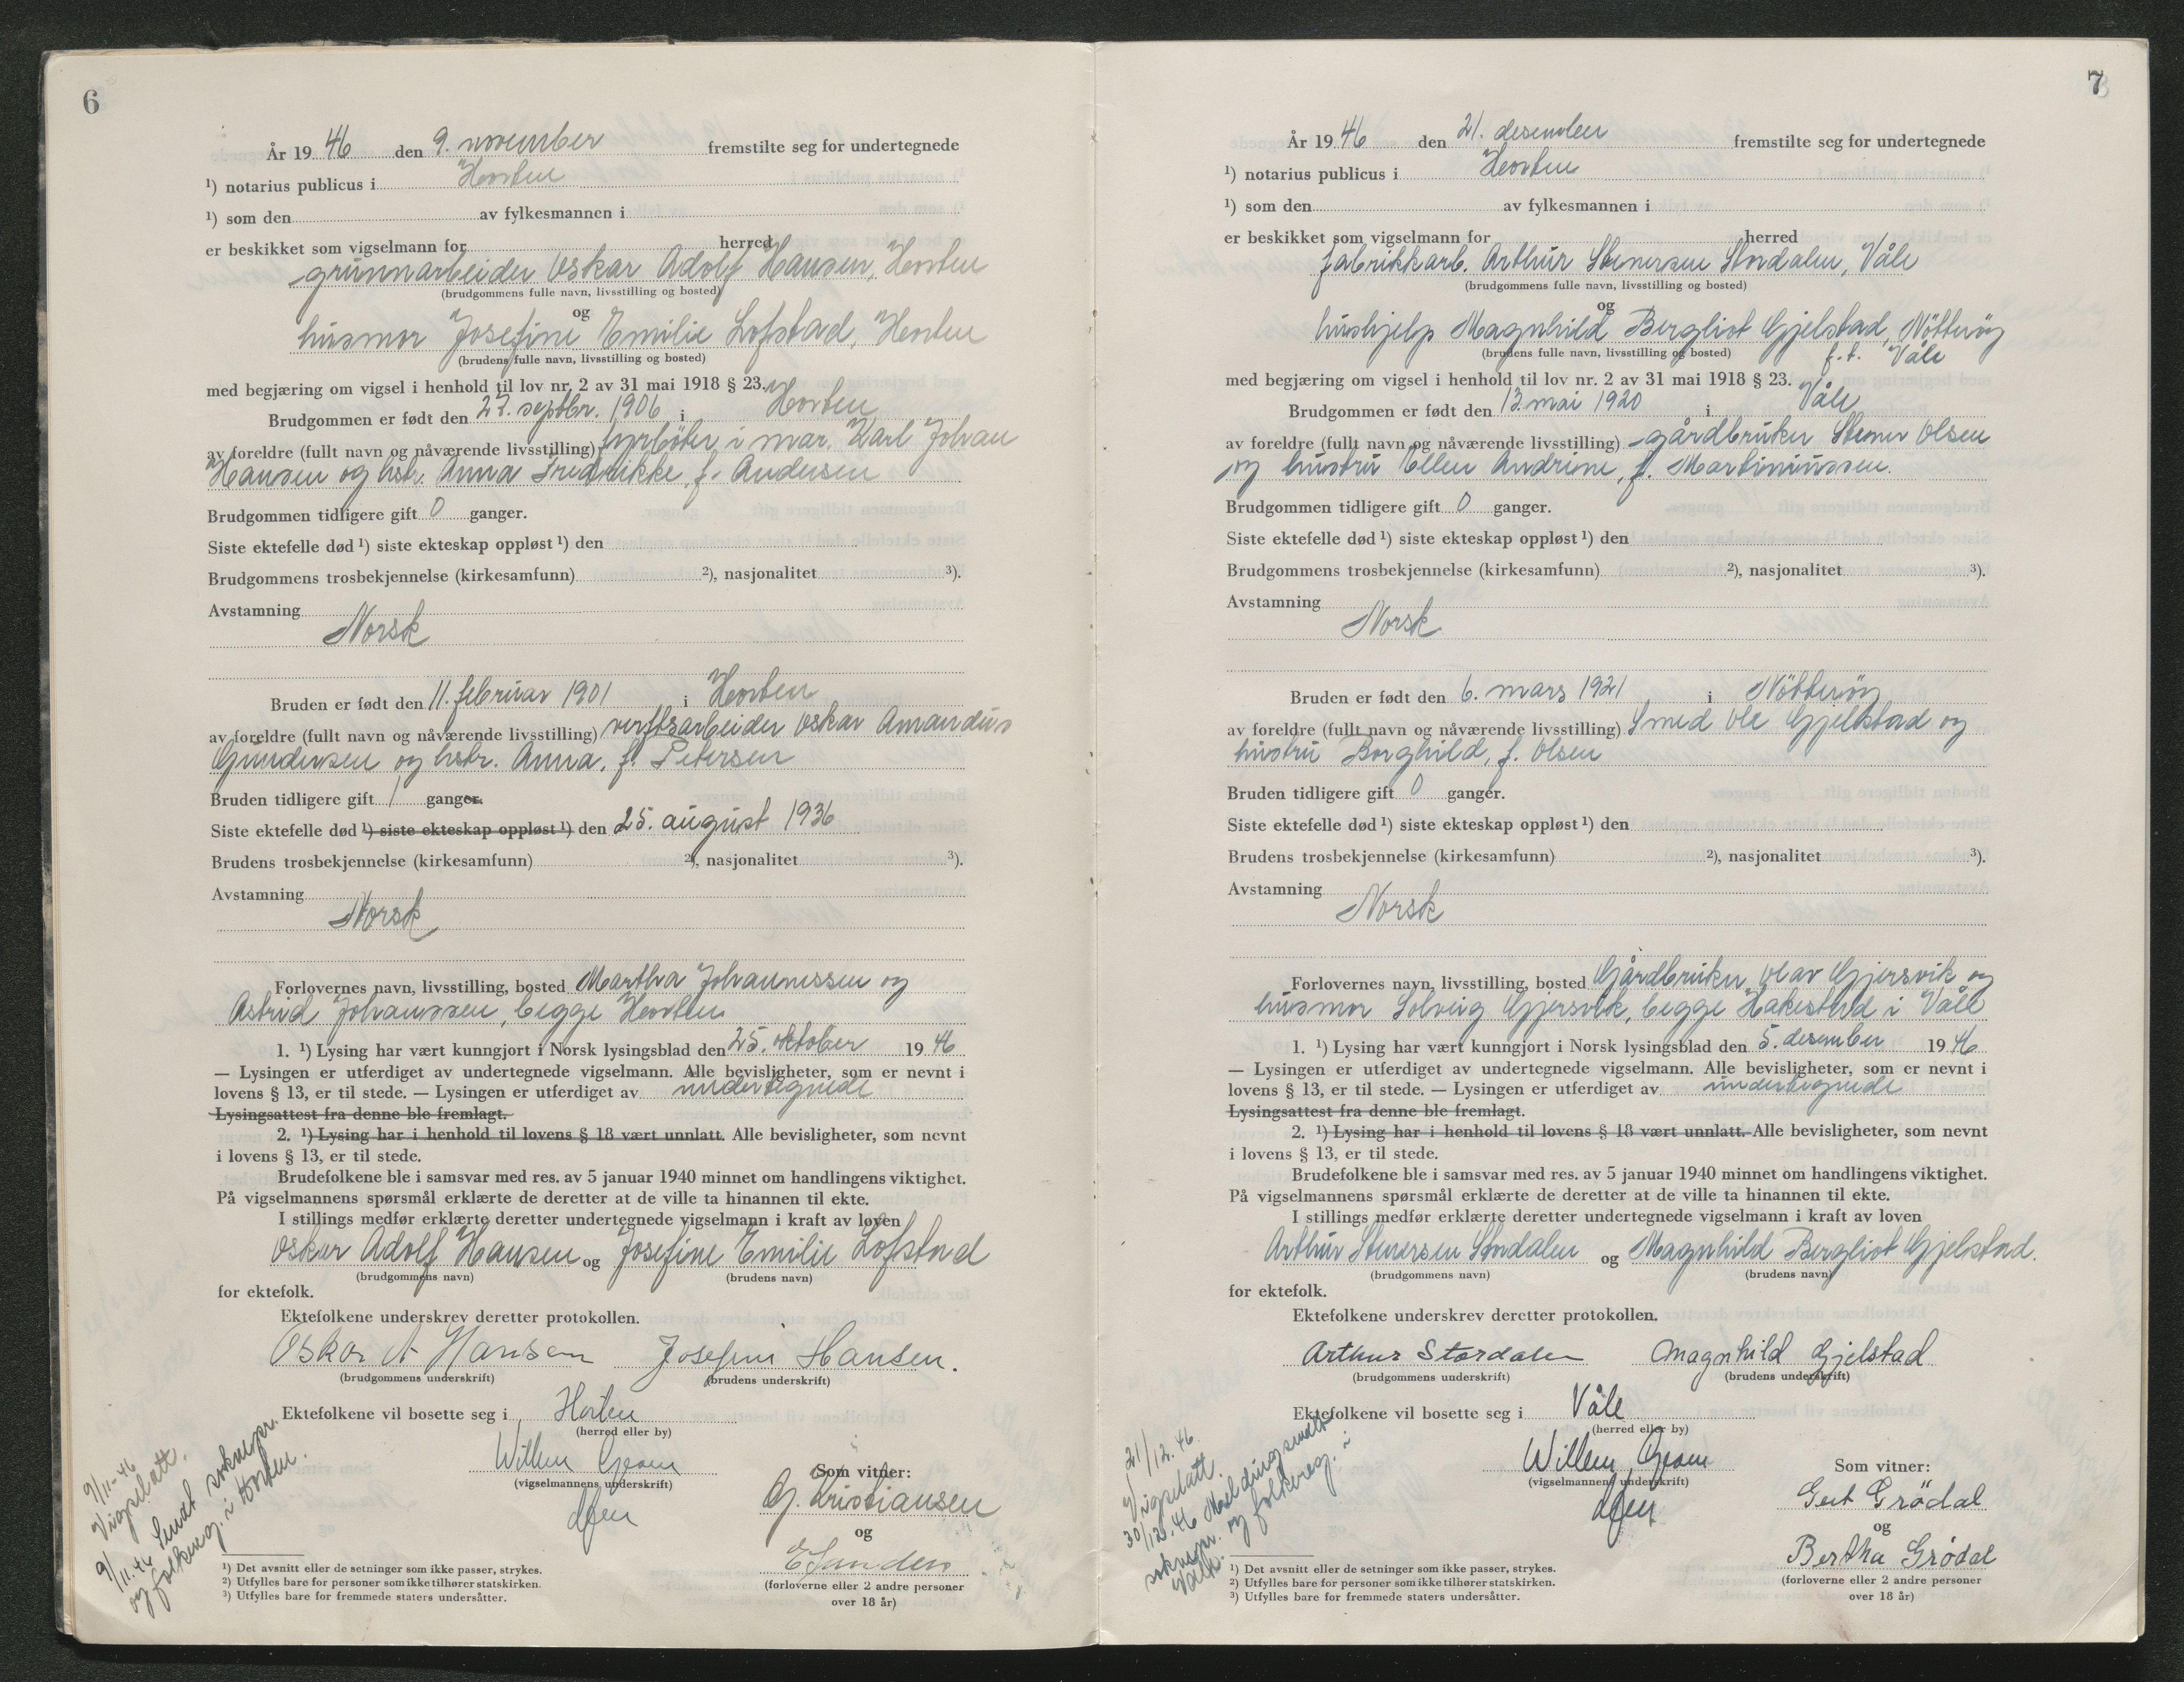 6
År 19 46 den 9. november fremstilte seg for undertegnede
¹) notarius publicus i Horten
¹) som den av fylkesmannen i
er beskikket som vigselmann for herred
grunnarbeider Oskar Adolf Hansen, Horten
(brudgommens fulle navn, livsstilling og bosted)
og
husmor Josefine Emilie Lofstad, Horten
(brudens fulle navn, livsstilling og bosted)
med begjæring om vigsel i henhold til lov nr. 2 av 31 mai 1918 § 23.
Brudgommen er født den 27. septbr. 1906 i Horten
av foreldre (fullt navn og nåværende livsstilling) fyrböter i mar. Karl Johan
Hansen og hstr. Anna Fredrikke, f. Andersen
Brudgommen tidligere gift 0 ganger.
Siste ektefelle død ¹) siste ekteskap oppløst ¹) den
Brudgommens trosbekjennelse (kirkesamfunn) ²), nasjonalitet ³).
Avstamning
Norsk
Bruden er født den 11. februar 1901 i Horten
av foreldre (fullt navn og nåværende livsstilling) verftsarbeider Oskar Amandus
Gundersen og hstr. Anna, f. Petersen
Bruden tidligere gift 1 ganger.
Siste ektefelle død ¹) siste ekteskap oppløst ¹) den 25. august 1936
Brudens trosbekjennelse (kirkesamfunn) ²), nasjonalitet ³).
Avstamning
Norsk
Forlovernes navn, livsstilling, bosted Martha Johannessen og
Astrid Johanssen, begge Horten
1. ¹) Lysing har vært kunngjort i Norsk lysingsblad den 25. oktober 19 46
— Lysingen er utferdiget av undertegnede vigselmann. Alle bevisligheter, som er nevnt i
lovens § 13, er til stede. — Lysingen er utferdiget av undertegnede
Lysingsattest fra denne ble fremlagt.
2. ¹) Lysing har i henhold til lovens § 18 vært unnlatt. Alle bevisligheter, som nevnt
i lovens § 13, er til stede.
Brudefolkene ble i samsvar med res. av 5 januar 1940 minnet om handlingens viktighet.
På vigselmannens spørsmål erklærte de deretter at de ville ta hinannen til ekte.
I stillings medfør erklærte deretter undertegnede vigselmann i kraft av loven
Oskar Adolf Hansen og Josefine Emilie Lofstad
(brudgommens navn) (brudens navn)
for ektefolk.
Ektefolkene underskrev deretter protokollen.
Oskar A Hansen Josefine Hansen.
(brudgommens underskrift) (brudens underskrift)
Ektefolkene vil bosette seg i Horten
(herred eller by)
Willem Gram
(vigselmannens underskrift)
Som vitner:
G. Kristiansen
og
(forloverne eller 2 andre personer
over 18 år)
9/11-46
Vigselatt.
9/11.46 Sendt soknepr.
og folkereg. i Horten.
¹) Det avsnitt eller de setninger som ikke passer, strykes.
²) Utfylles bare for personer som ikke tilhører statskirken.
³) Utfylles bare for fremmede staters undersåtter.
7
År 19 46 den 21. desember fremstilte seg for undertegnede
¹) notarius publicus i Horten
¹) som den av fylkesmannen i
er beskikket som vigselmann for herred
fabrikkarb. Arthur Stenersen Stordalen, Våle
(brudgommens fulle navn, livsstilling og bosted)
og
hushjelp Magnhild Bergliot Gjelstad, Nötteröy
(brudens fulle navn, livsstilling og bosted) f.t. Våle
med begjæring om vigsel i henhold til lov nr. 2 av 31 mai 1918 § 23.
Brudgommen er født den 13. mai 1920 i Våle
av foreldre (fullt navn og nåværende livsstilling) gårdbruker Stener Olsen
og hustru Ellen Andrine, f. Martiniussen.
Brudgommen tidligere gift 0 ganger.
Siste ektefelle død ¹) siste ekteskap oppløst ¹) den
Brudgommens trosbekjennelse (kirkesamfunn) ²), nasjonalitet ³).
Avstamning
Norsk
Bruden er født den 6. mars 1921 i Nötteröy
av foreldre (fullt navn og nåværende livsstilling) Smed Ole Gjelstad og
hustru Borghild, f. Olsen
Bruden tidligere gift 0 ganger.
Siste ektefelle død ¹) siste ekteskap oppløst ¹) den
Brudens trosbekjennelse (kirkesamfunn) ²), nasjonalitet ³).
Avstamning
Norsk
Forlovernes navn, livsstilling, bosted Gårdbruker Olav Gjersvik og
husmor Solveig Gjersvik, begge Hakestad i Våle
1. ¹) Lysing har vært kunngjort i Norsk lysingsblad den 5. desember 19 46
— Lysingen er utferdiget av undertegnede vigselmann. Alle bevisligheter, som er nevnt i
lovens § 13, er til stede. — Lysingen er utferdiget av undertegnede
Lysingsattest fra denne ble fremlagt.
2. ¹) Lysing har i henhold til lovens § 18 vært unnlatt. Alle bevisligheter, som nevnt
i lovens § 13, er til stede.
Brudefolkene ble i samsvar med res. av 5 januar 1940 minnet om handlingens viktighet.
På vigselmannens spørsmål erklærte de deretter at de ville ta hinannen til ekte.
I stillings medfør erklærte deretter undertegnede vigselmann i kraft av loven
Arthur Stenersen Stordalen og Magnhild Bergliot Gjelstad.
(brudgommens navn) (brudens navn)
for ektefolk.
Ektefolkene underskrev deretter protokollen.
Arthur Stordalen Magnhild Gjelstad
(brudgommens underskrift) (brudens underskrift)
Ektefolkene vil bosette seg i Våle
(herred eller by)
Willem Gram
(vigselmannens underskrift)
Som vitner:
Gert Grödal
og
Bertha Grödal
(forloverne eller 2 andre personer
over 18 år)
21/12.46.
Vigselatt.
30/12.46 Melding sendt
soknepr. og folkereg. i
Våle.
¹) Det avsnitt eller de setninger som ikke passer, strykes.
²) Utfylles bare for personer som ikke tilhører statskirken.
³) Utfylles bare for fremmede staters undersåtter.